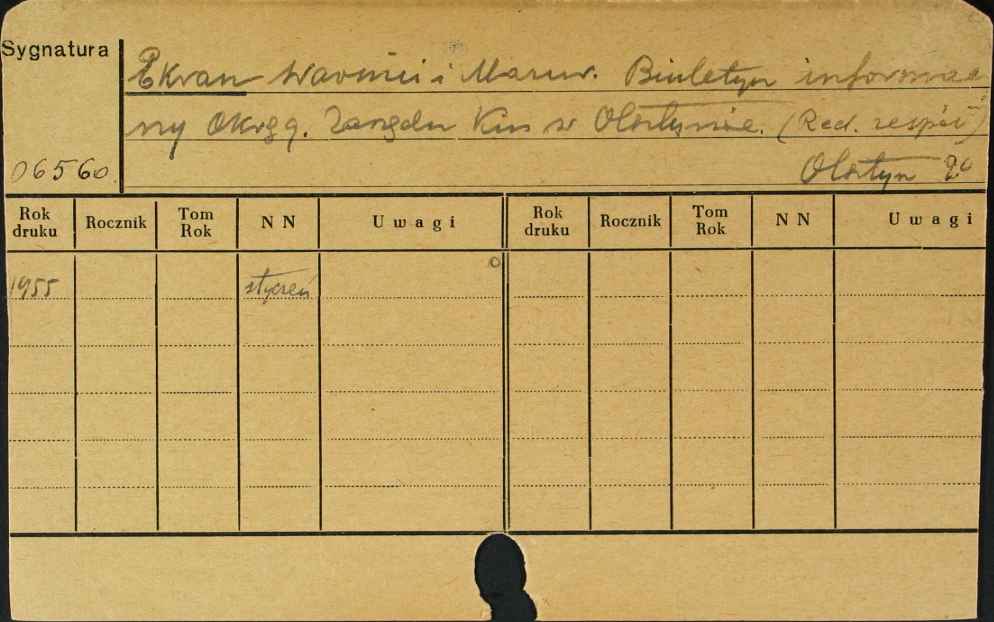 Sygnatura
Ekran Warmii i Mazur. Biuletyn informacy
ny Okręg. Zarządu Kin w Olsztynie. (Red. zespół)
06560
Olsztyn
Rok druku Rocznik Tom Rok N N Uwagi Rok druku Rocznik Tom Rok N N Uwagi
1955 styczeń